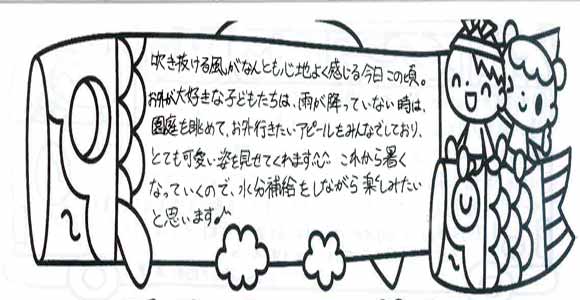 吹き抜ける風がなんとも心地よく感じる今日この頃。
お外が大好きな子どもたちは、雨が降っていない時は、
園庭を眺めて、お外行きたいアピールをみんなでしており、
とても可愛い姿を見せてくれます^^ これから暑く
なっていくので、水分補給をしながら楽しみたい
と思います♪